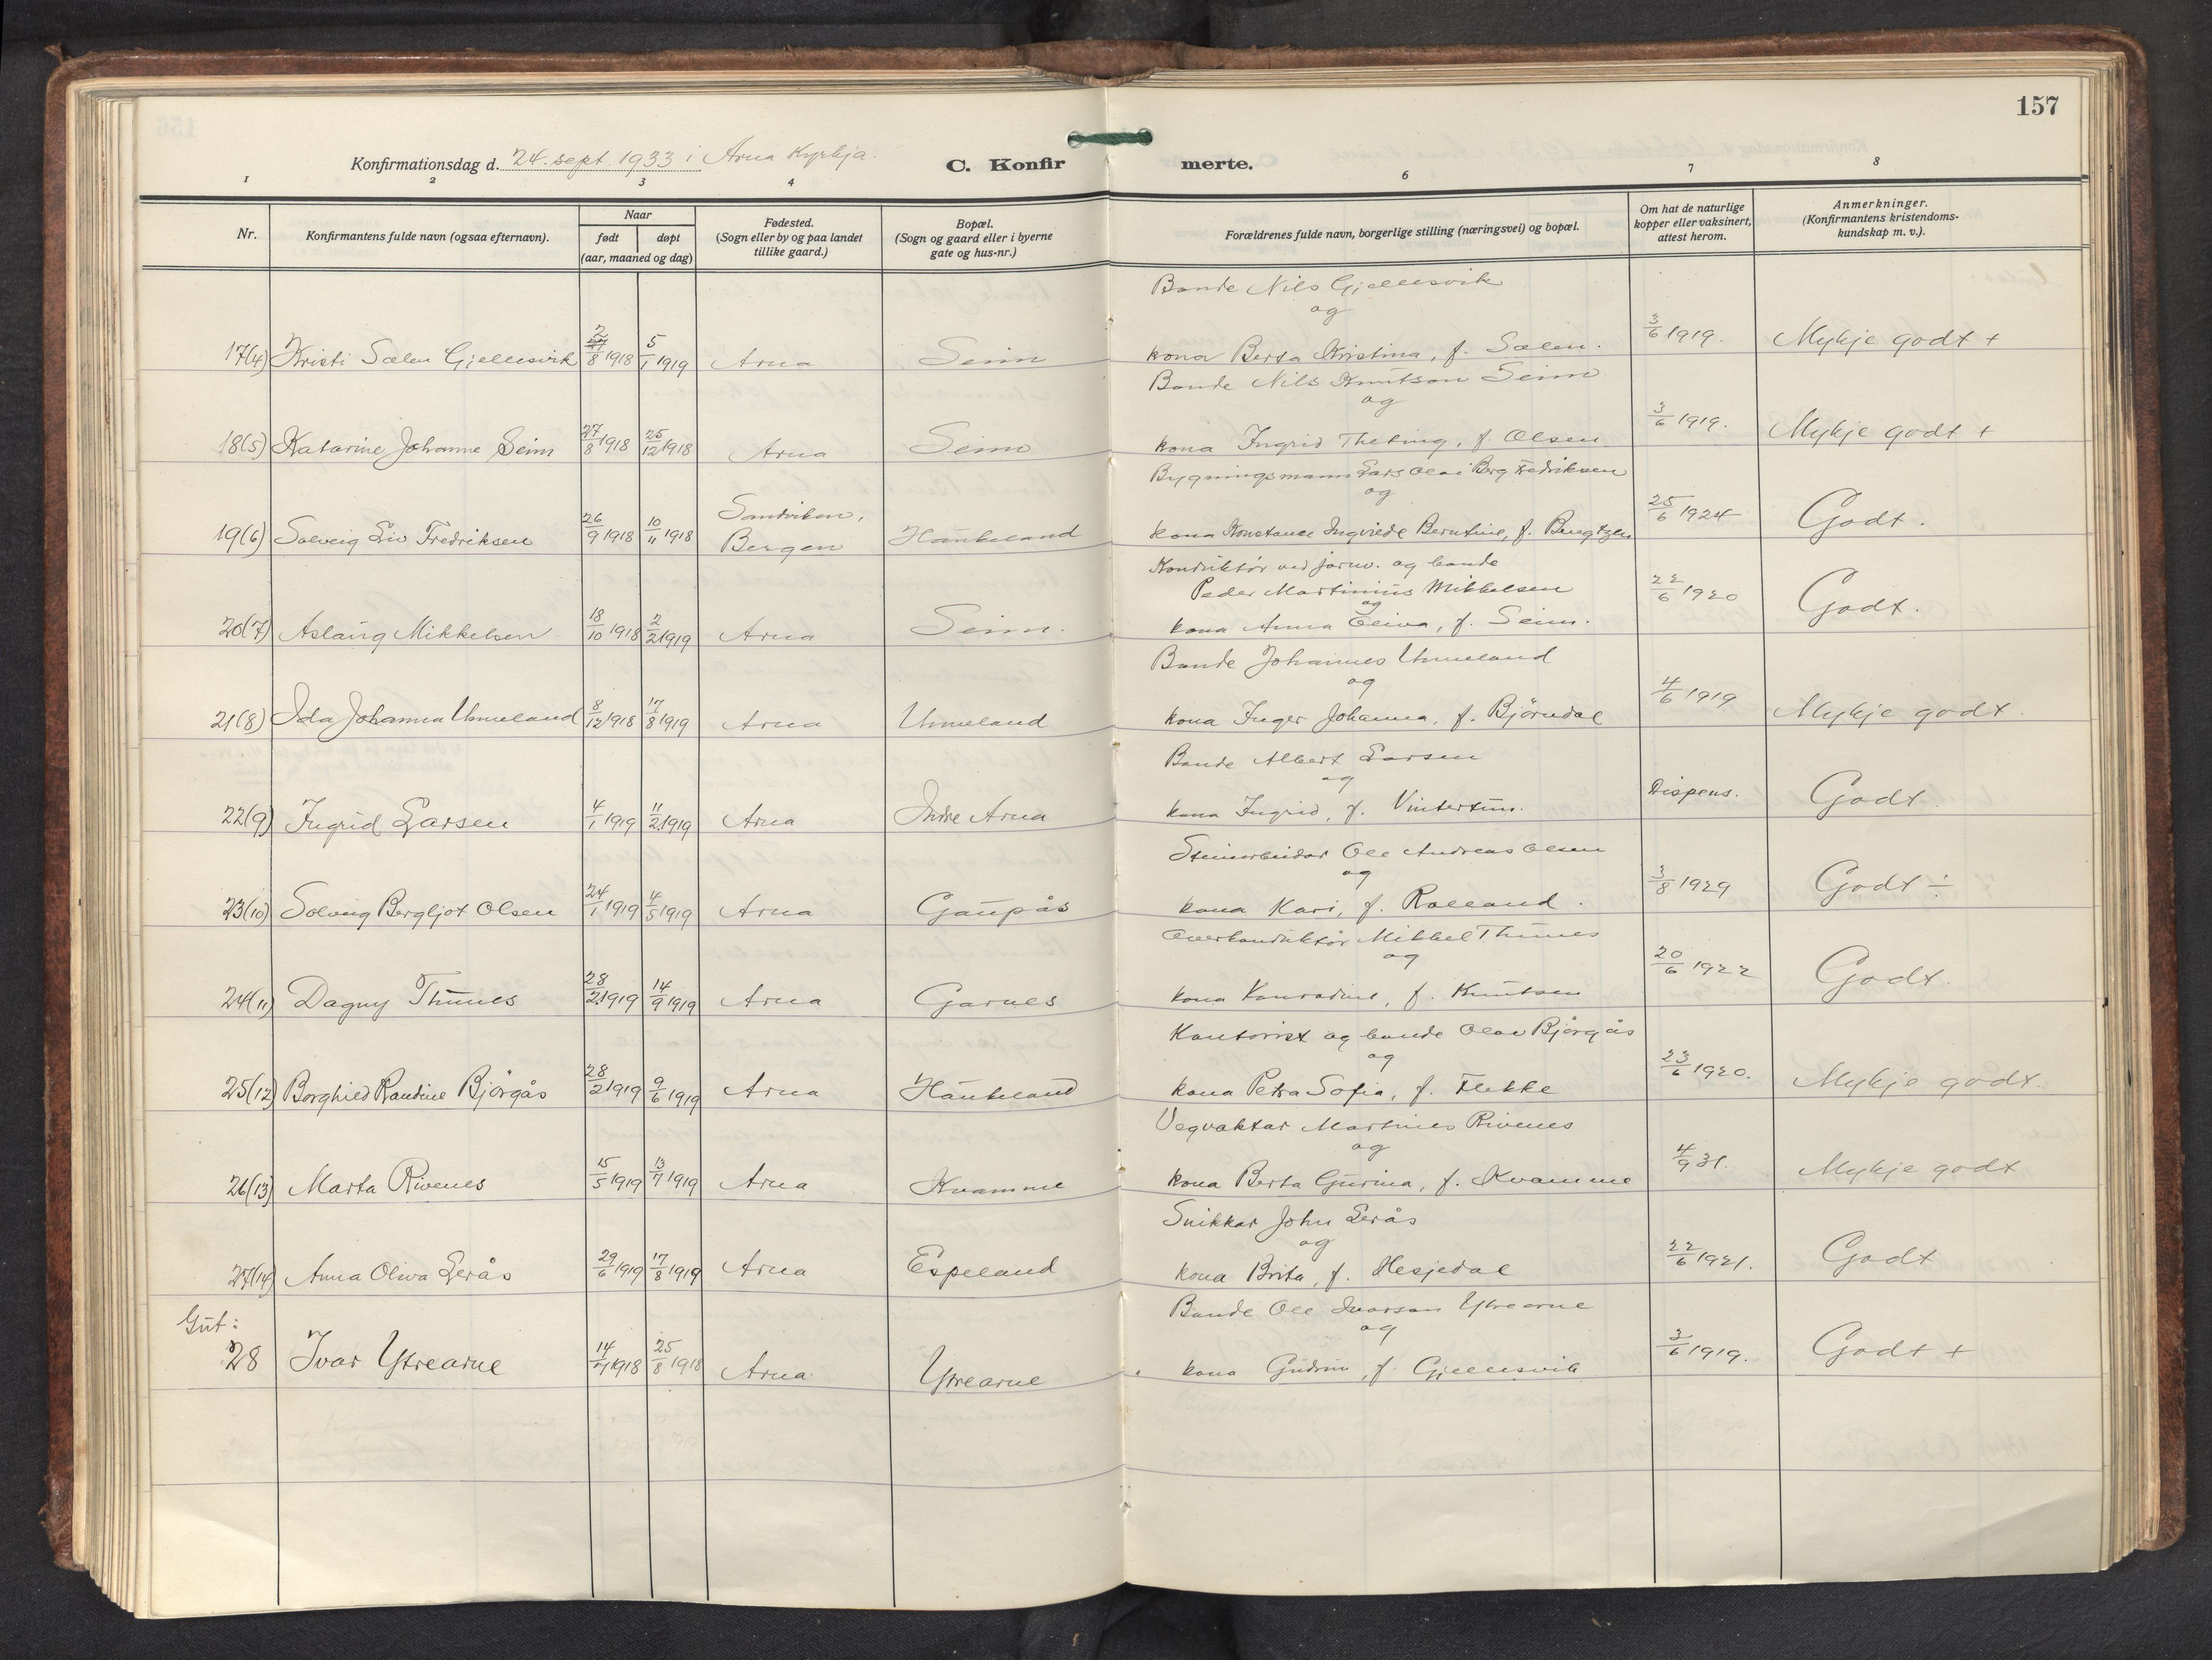 157
Konfirmationsdag d. 24. sept. 1933 i Arna Kyrkja.
C. Konfirmerte.
1 2 3 4 6 7 8
Nr.
Konfirmantens fulde navn (ogsaa efternavn).
Naar
født døpt
(aar, maaned og dag)
Fødested.
(Sogn eller by og paa landet
tillike gaard.)
Bopæl.
(Sogn og gaard eller i byerne
gate og hus-nr.)
Forældrenes fulde navn, borgerlige stilling (næringsvei) og bopæl.
Om hat de naturlige
kopper eller vaksinert,
attest herom.
Anmerkninger.
(Konfirmantens kristendoms-
kundskap m. v.).
Bonde Nils Gjellesvik
og
17(4) Kristi Sælen Gjellesvik 2/8 1918 5/1 1919 Arna Seim kona Berta Kristina, f. Sælen. 3/6 1919. Mykje godt +
Bonde Nils Knutson Seim
og
18(5) Katarine Johanne Seim 27/8 1918 25/12 1918 Arna Seim kona Ingrid Theting, f. Olsen 3/6 1919. Mykje godt +
Bygningsmann Lars Olai Berg Fredriksen
og
Sandviken,
19(6) Solveig Liv Fredriksen 26/9 1918 10/11 1918 Bergen Haukeland kona Konstance Ingvielde Berntine, f. Bengtzen 25/6 1924 Godt.
Konduktør ved jarnv. og bonde
Peder Martinius Mikkelsen
og
20(7) Aslaug Mikkelsen 18/10 1918 2/2 1919 Arna Seim. kona Anna Eliva, f. Seim. 22/6 1920 Godt.
Bonde Johannes Unneland
og
21(8) Ida Johanna Unneland 8/12 1918 17/8 1919 Arna Unneland kona Inger Johanna, f. Björndal 4/6 1919 Mykje godt.
Bonde Albert Larsen
og
22(9) Ingrid Larsen 4/1 1919 11/2 1919 Arna Indre Arna kona Ingrid, f. Vintertun. Dispens. Godt
Steinarbeidar Ole Andreas Olsen
og
23(10) Solveig Bergljot Olsen 24/1 1919 4/5 1919 Arna Gaupås kona Kari, f. Rolland. 3/8 1929 Godt ÷
Overkonduktør Mikkel Thunes
og
24(11) Dagny Thunes 28/2 1919 14/9 1919 Arna Garnes kona Konradine, f. Knutsen 20/6 1922 Godt.
Kontorist og bonde Olav Björgås
og
25(12) Borghild Randine Björgås 28/2 1919 9/6 1919 Arna Haukeland kona Petra Sofia, f. Flekke 23/6 1920. Mykje godt.
Vegvaktar Martines Rivenes
og
26(13) Marta Rivenes 15/5 1919 13/7 1919 Arna Kvamme kona Berta Gurina, f. Kvamme 4/9 31. Mykje godt
Snikkar John Lerås
og
27(14) Anna Oliva Lerås 29/6 1919 17/8 1919 Arna Espeland kona Brita, f. Hesjedal 22/6 1921. Godt
Gut:
Bonde Ole Ivarson Ytrearne
og
28 Ivar Ytrearne 14/7 1918 25/8 1918 Arna Ytrearne kona Gudrun, f. Gjellesvik 3/6 1919. Godt +